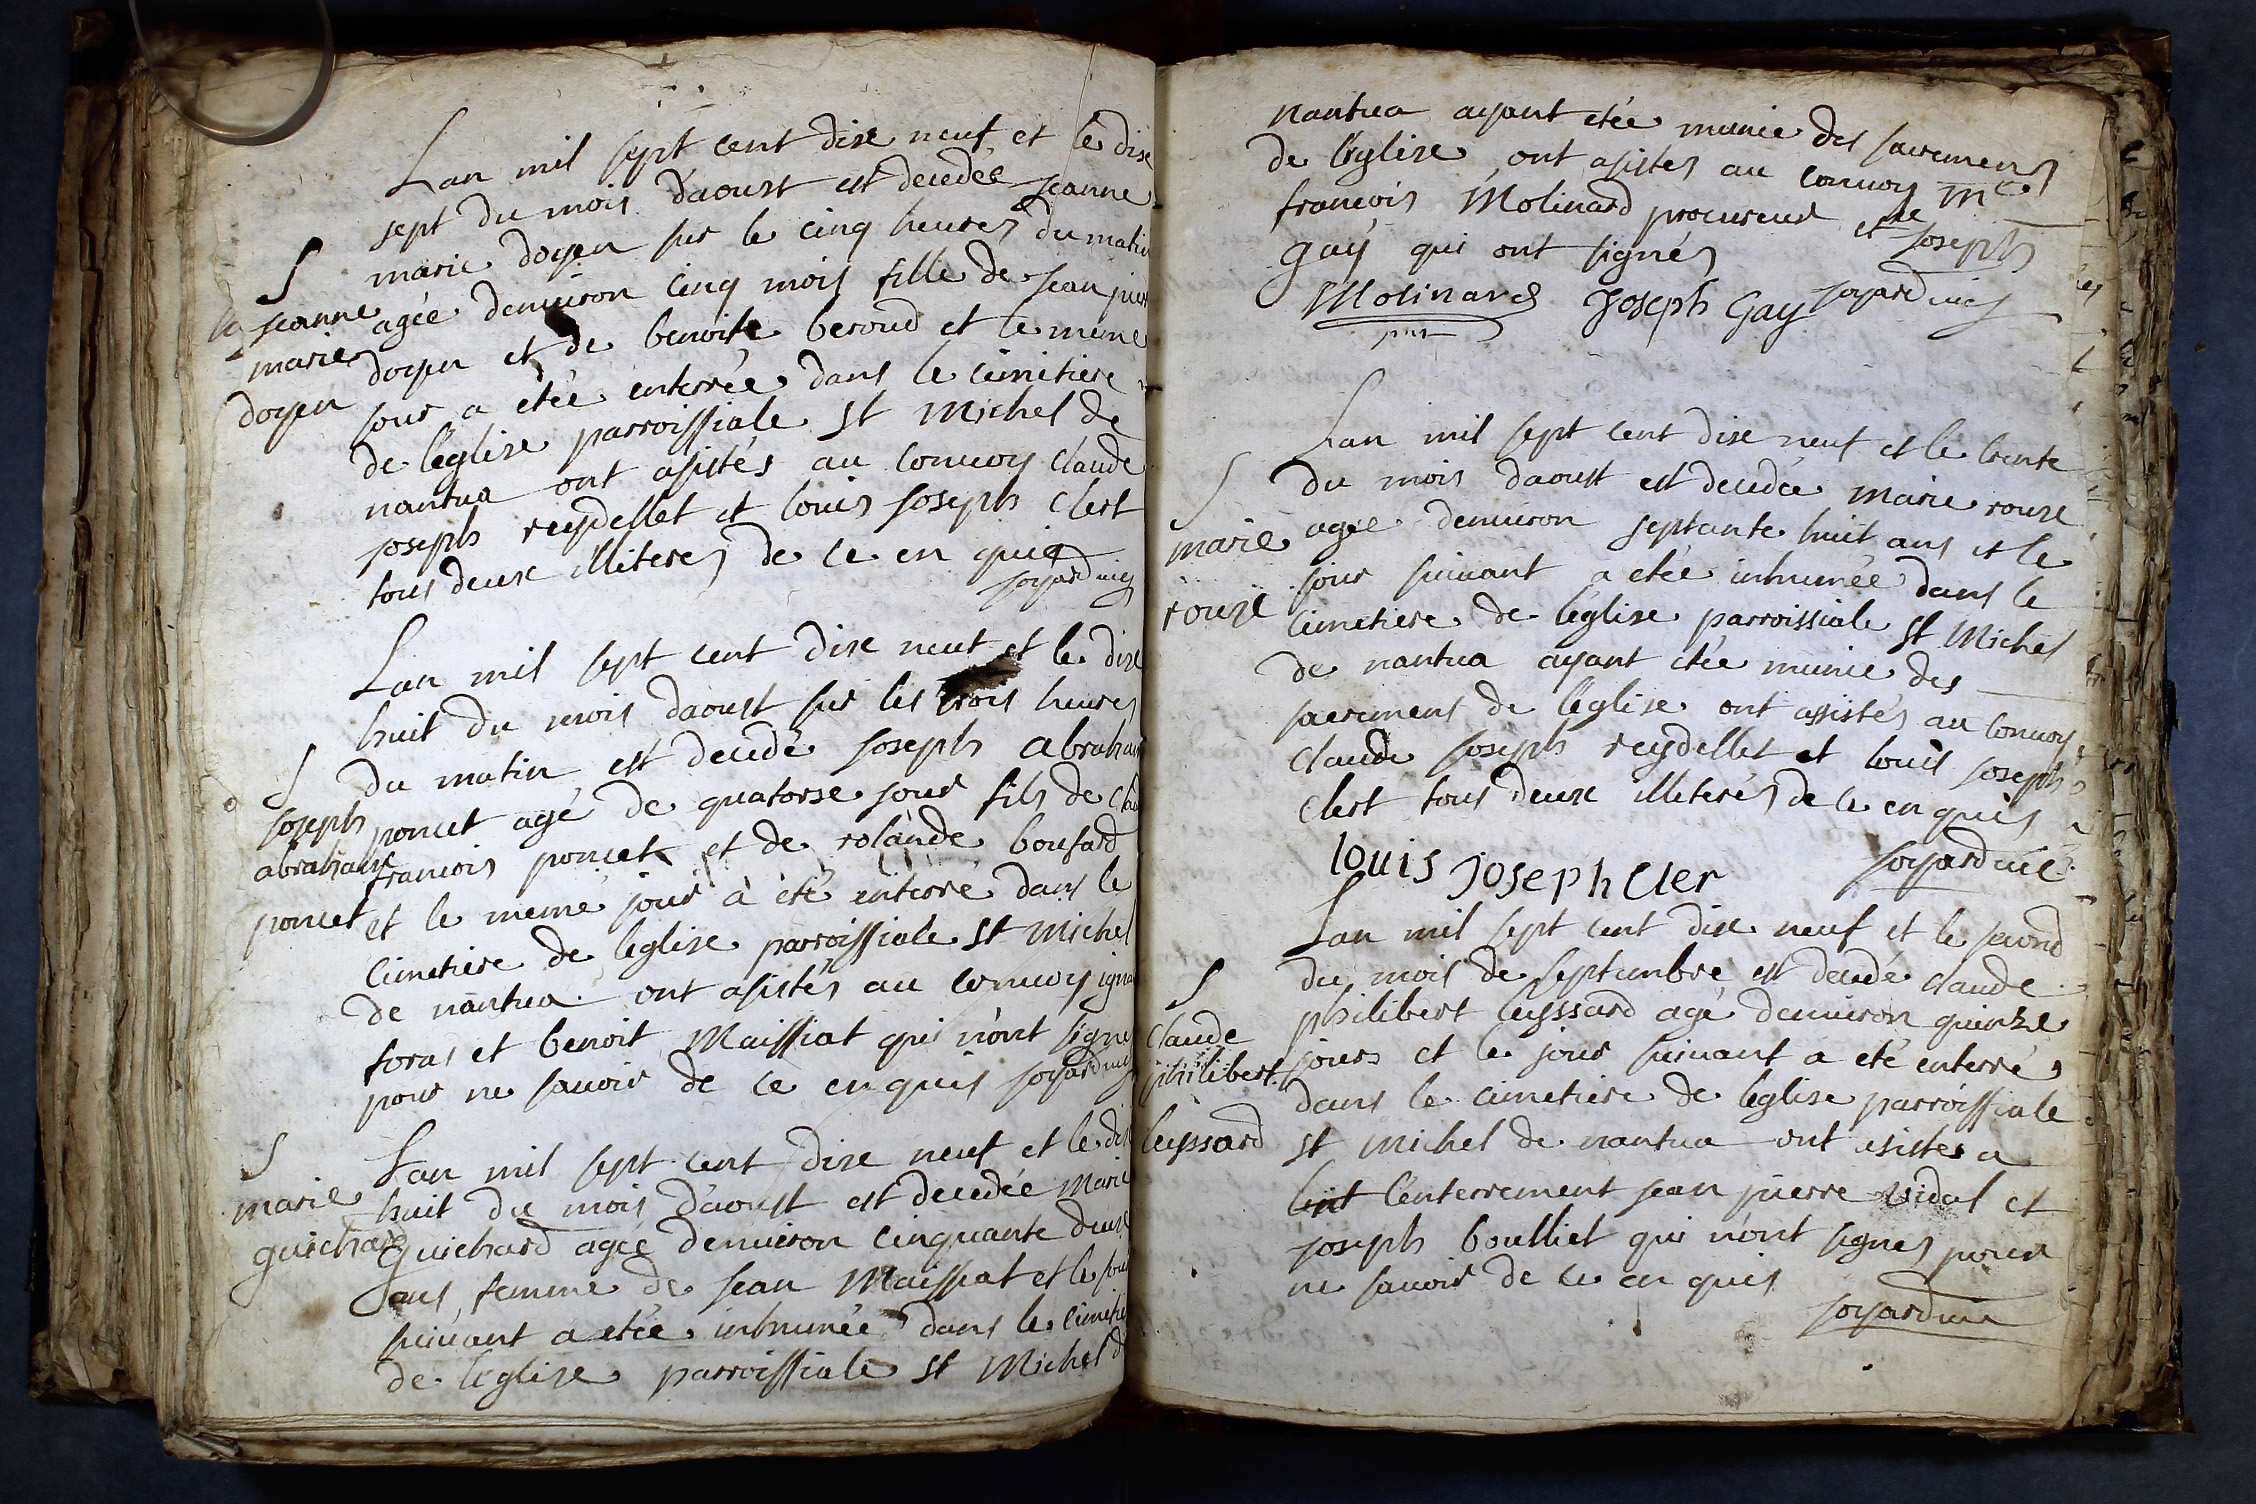 Lan mil sept cent dixe neuf et le dixe
sept du mois daoust est decedée jeanne
marie doyen sur le cinq heures du matin
agée denuiron cinq mois fille de jean
doyen et de benoite beroud et le meme
jour a etée enterrée dans le cimetiere
de leglise parroissiale st Michel de
nantua ont asistés au conuoy claude
joseph reydellet et louis joseph clert
tous deuxe illiteres de ce en quis
sojard vic
S
jeanne
marie
doyen
Lan mil sept cent dixe neuf et le dixe
huit du mois daoust sur les trois heures
du matin est decedé joseph abraham
poncet agé de quatorse jour fils de
francois poncet et de rolande boufard
et le meme jour a été enterré dans le
cimetiere de leglise parroissiale st Michel
de nantua ont asistés au conuoy
foras et benoit Maissiat qui n'ont signé
pour ne sauoir de ce enquis sojard vic
S
joseph
abraham
poncet
Lan mil sept cent dixe neuf et le dix
huit du mois daoust est decedée Marie
Guichard agée denuiron cinquante deuxe
ans femme de jean Maissiat et le jour
suiuant a etée inhumée dans le cimetie
de leglise parroissiale st Michel d
S
marie
guichard
nantua ayant etée munie des sacremens
de leglise ont asistes au conuoy Me
francois Molinard procureur et joseph
gay qui ont signés
Molinard Joseph Gay sojard vic
Lan mil sept cent dixe neuf et le trente
du mois daoust est decedée marie rouxe
agée denuiron septante huit ans et le
jour suiuant a etée inhumée dans le
cimetiere de leglise parroissiale st Michel
de nantua ayant etée munie des
sacremens de leglise ont assistés au conuoy
claude joseph reydellet et louis joseph
clert tous deuxe illiterés de ce enquis
louis joseph cler sojard vic
S
marie
rouxe
Lan mil sept cent dixe neuf et le second
du mois de septembre est decedé claude
philibert leyssard agé denuiron quinze
jours et le jour suiuant a eté enterré
dans le cimetiere de leglise parroissiale
st michel de nantua ont asistes a
lent l'enterrement jean pierre vidal et
joseph boulliet qui n'ont signes pour
ne sauoir de ce en quis
sojard vic
S
claude
philibert
leyssard